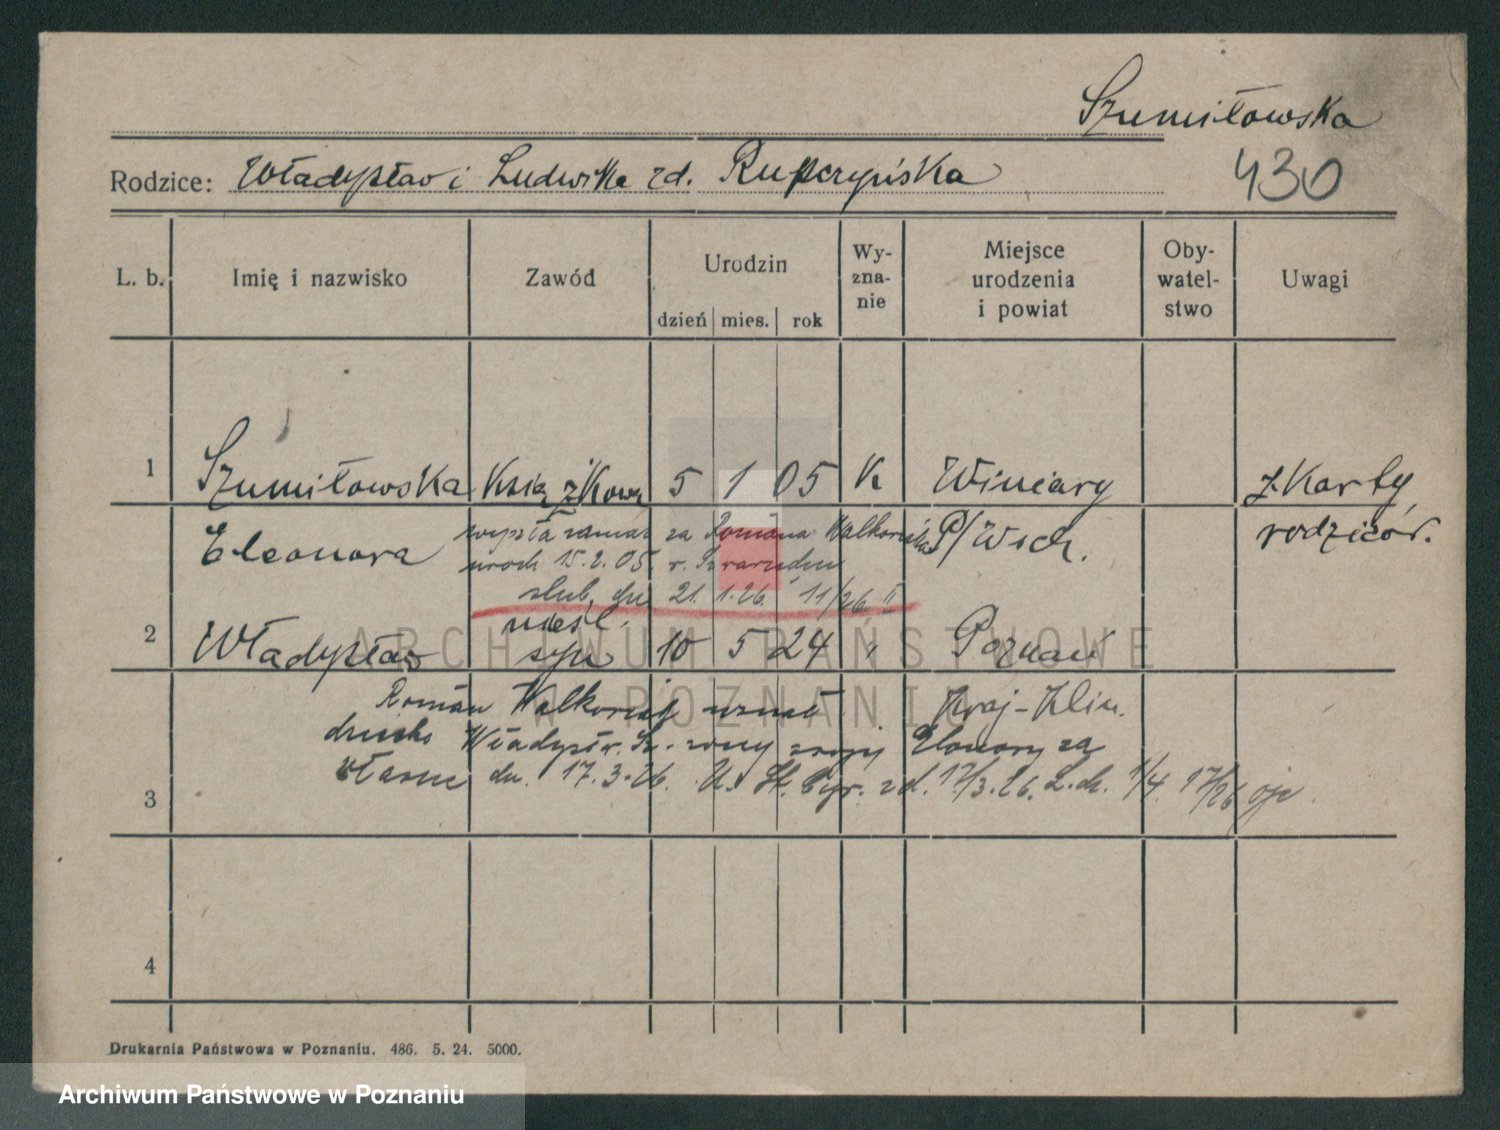 Szumiłowska
Rodzice: Władysław i Ludwika zd. Rupczyńska
430
L. b. Imię i nazwisko Zawód Urodzin Wy-zna-nie Miejsce urodzenia i powiat Oby-watel-stwo Uwagi
dzień mies. rok
1 Szumiłowska Książkowa 5 1 05 K Winiary z Karty
Eleonora P/Wsch. rodziców.
wyszła zamąż za Romana Walkowiaka
urodz 15.2.05. r.
ślub. dn 21.1.26. 11/26 II
2 Władysław nieśl. syn 10 5 24 " Poznań
Roman Walkowiak uznał Kraj-Klin.
dziecko Władysław Sz. żony swojej Elonory za
własne dn. 17.3.26. U. St. Cyw. zd. 17/3.26. L.dz. 1/4. 17/26
3
4
Drukarnia Państwowa w Poznaniu. 486. 5. 24. 5000.
ARCHIWUM PAŃSTWOWE
W POZNANIU
Archiwum Państwowe w Poznaniu